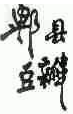 郫县
豆瓣